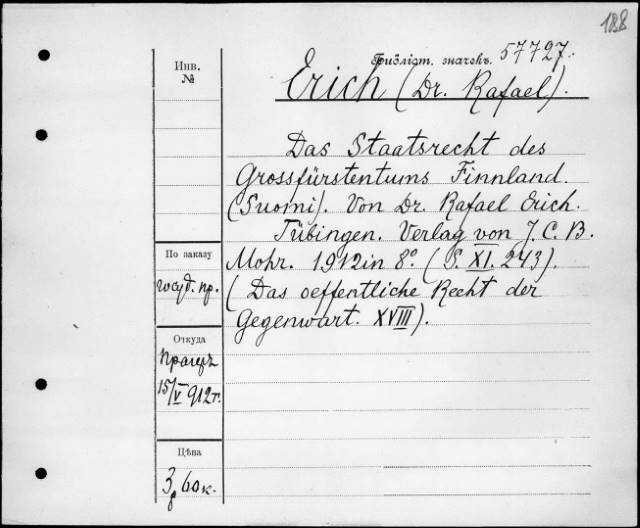 188
Библіот. значекъ. 57727.
Erich (Dr. Rafael).
Das Staatsrecht des
Grossfürstentums Finnland.
(Suomi). Von Dr. Rafael Erich.
Tübingen. Verlag von J. C. B.
Mohr. 1912 in 8°. (S. XI. 243).
(Das oeffentliche Recht der
Gegenwart. XVIII).
Инв.
№
По заказу
Откуда
15/V 912 г.
Цѣна
3 р 60 к.